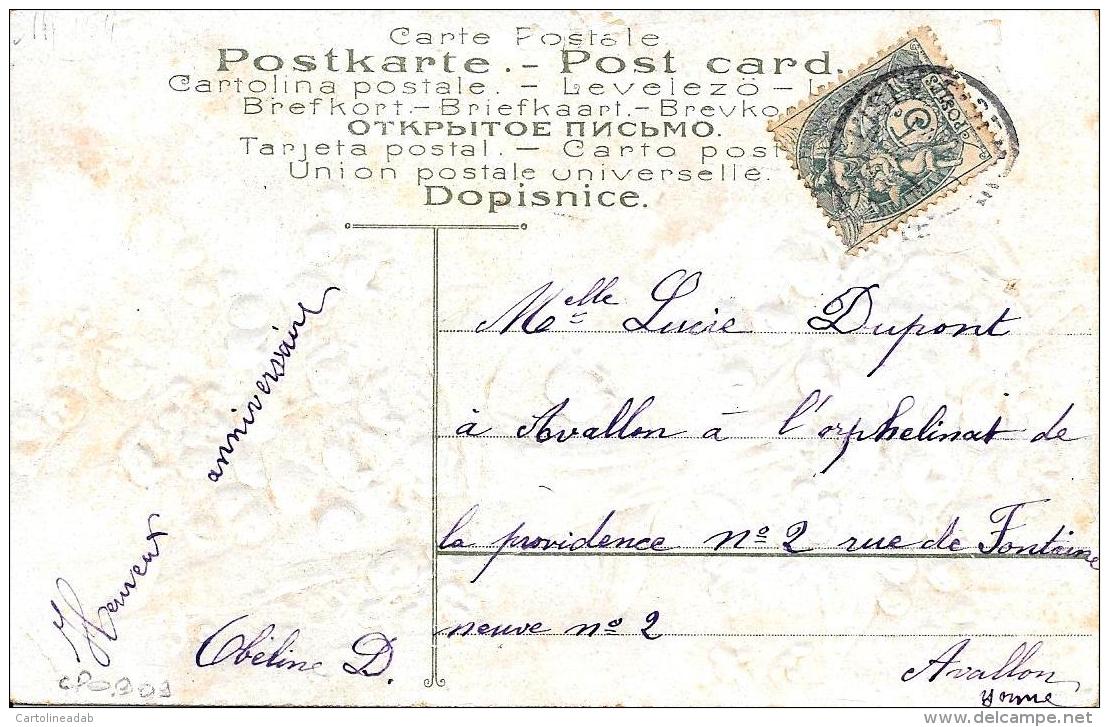 Carte Postale
Postkarte.- Post card.
Cartolina postale. - Levelezö -
Brefkort.- Briefkaart.- Brevko
ОТКРЫТОЕ ПИСЬМО.
Tarjeta postal. - Carto post
Union postale universelle.
Dopisnice.
POSTES
Melle Lucie Dupont
à Avallon à l'orphelinat de
la providence no 2 rue de Fontaine
neuve no 2
Avallon
Yonne
Heureux anniversaire
Obéline D.
CPO.909
Cartolineadab
www.delcampe.net